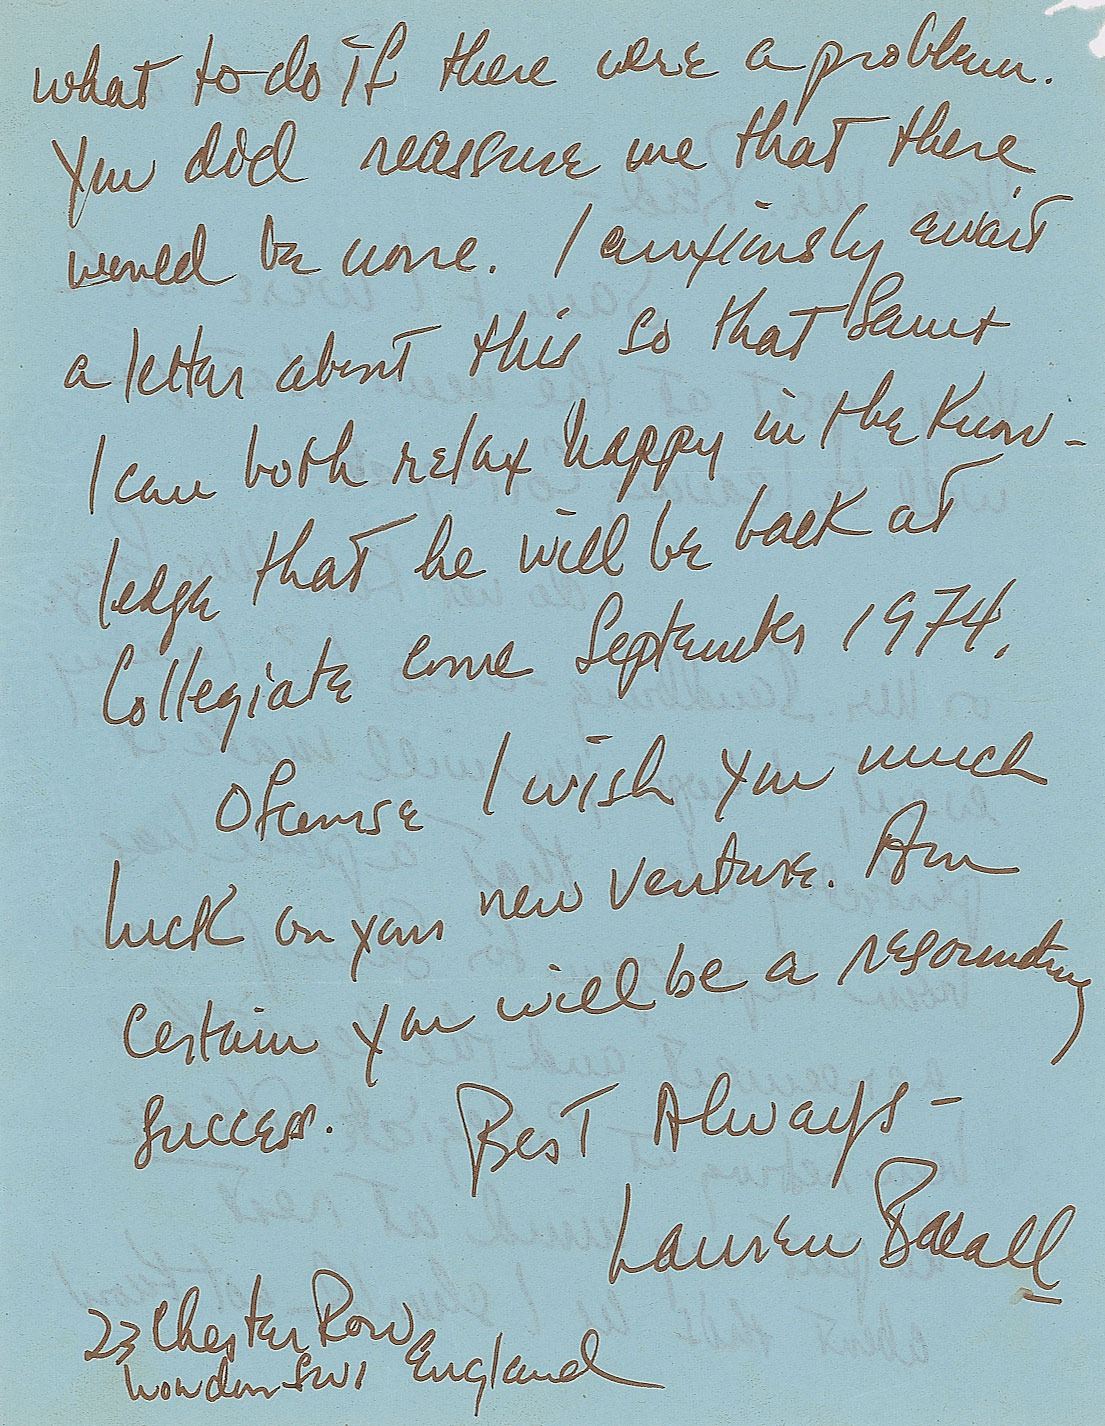 what to do if there were a problem.
You did reassure me that there
would be none. I anxiously await
a letter about this so that Sam +
I can both relax happy in the know-
ledge that he will be back at
Collegiate come September 1974.
Ofcourse I wish you much
luck on your new venture. Am
certain you will be a resounding
success. Best Always -
Lauren Bacall
23 Chester Row
London SW1 England